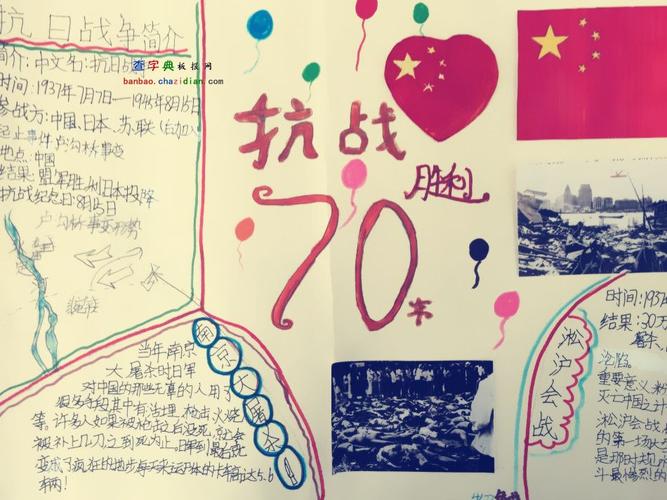 抗日战争简介
查字典板报网
banbao.chazidian.com
简介:中文名:抗日战
时间:1937年7月7日—1945年8月15日
参战方:中国、日本、苏联(后加入
起止事件卢沟桥事变
地点:中国
结果:盟军胜利日本投降
抗战纪念日8月15日
卢沟桥事变形势
宛平
抗战
胜利
70年
南京大屠杀
当年南京
大屠杀时日军
对中国的那些无辜的人用了
很多手段其中有活埋、枪击火烧
等。许多人如果被枪击后没死,就会
被补上几刀之到死为止。日军到最后
变成了疯狂的地步每天来运尸体的卡
车两!
淞沪会战
时间:1937
结果:30万
重要意
灭亡中国之计
淞沪会战
的第一场大
是那时规
斗最惨烈的